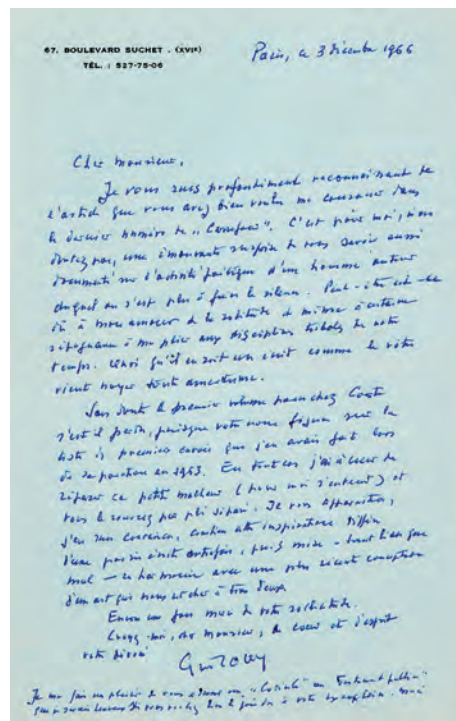 67. BOULEVARD SUCHET . (XVIe)
TÉL. : 527-75-06
Paris, le 3 décembre 1966
Cher Monsieur,
Je vous suis profondément reconnaissant de
l'article que vous avez bien voulu me consacrer dans
le dernier numéro de "Carrefour". C'est pour moi, n'en
doutez pas, une émouvante surprise de vous savoir aussi
documenté sur l'activité poétique d'un homme autour
duquel on s'est plu à faire le silence. Peut-être est-ce
dû à mon amour de la solitude et même à certaine
répugnance à me plier aux disciplines tribales de notre
temps. Quoi qu'il en soit un écrit comme le vôtre
vient noyer toute amertume.
Sans doute le premier volume paru chez
s'est-il perdu, puisque votre nom figure sur la
liste des premiers envois que j'en avais fait lors
de sa parution en 1963. En tout cas j'ai à cœur de
réparer ce petit malheur (pour moi s'entend) et
vous le recevrez par pli séparé. Il vous apparaîtra,
j'en suis convaincu, combien cette inspiration diffère
d'une poésie écrite autrefois, puis mise - tant bien que
mal - en harmonie avec une plus récente conception
d'un art qui nous est cher à tous deux.
Encore une fois merci de votre sollicitude.
Croyez-moi, cher Monsieur, de cœur et d'esprit
votre dévoué
Je me fais un plaisir de vous